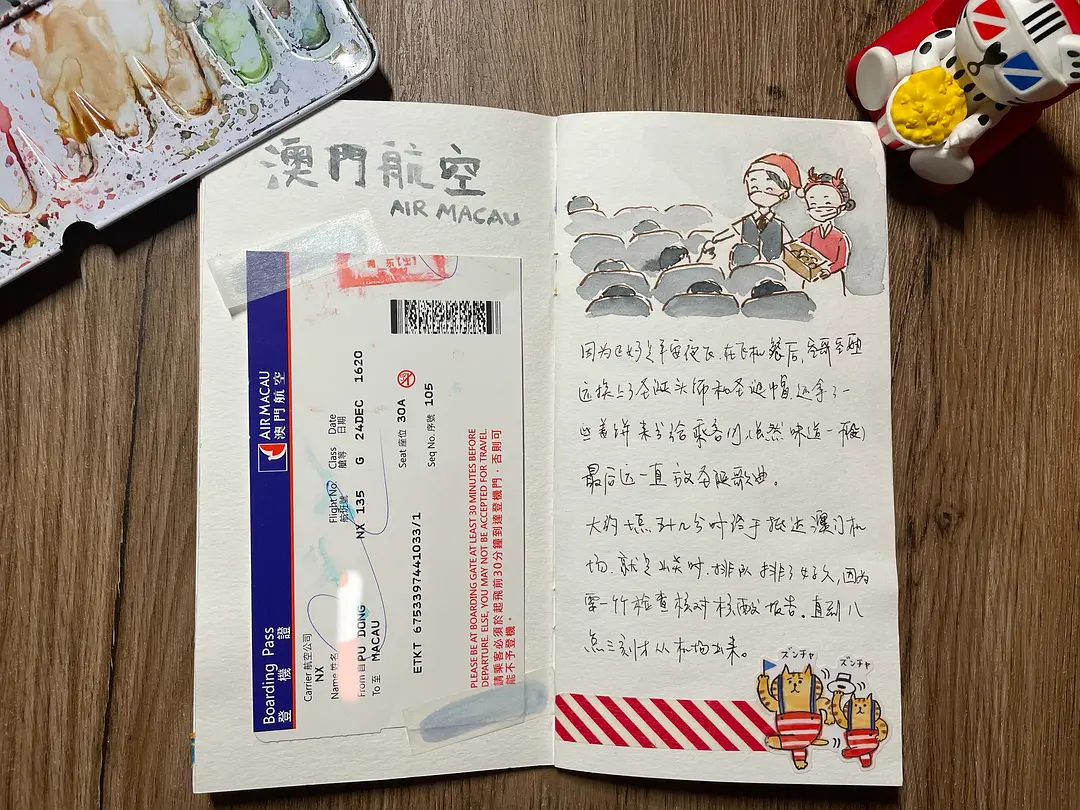 澳門航空
AIR MACAU
AIR MACAU
澳門航空
Boarding Pass
登機證
Carrier 航空公司
NX
Name 姓名
Flight No. 航班號
NX 135
Class 艙等
G
Date 日期
24DEC 1620
From 自 PU DONG
To 至 MACAU
ETKT 6753397441033/1
Seat 座位 30A
Seq No. 序號 105
PLEASE BE AT BOARDING GATE AT LEAST 30 MINUTES BEFORE
DEPARTURE. ELSE, YOU MAY NOT BE ACCEPTED FOR TRAVEL.
請乘客必須於起飛前30分鐘到達登機門,否則可
能不予登機。
因为正好是平安夜飞,在飞机餐后,空哥空姐
还换上了圣诞头饰和圣诞帽,还拿了一
些姜饼来分给乘客们(虽然味道一般)
最后还一直放圣诞歌曲。
大约七点十几分时终于抵达澳门机
场,就是出关时,排队排了好久,因为
要一个个检查核对核酸报告。直到八
点三刻才从机场出来。
ズンチャ
ズンチャ